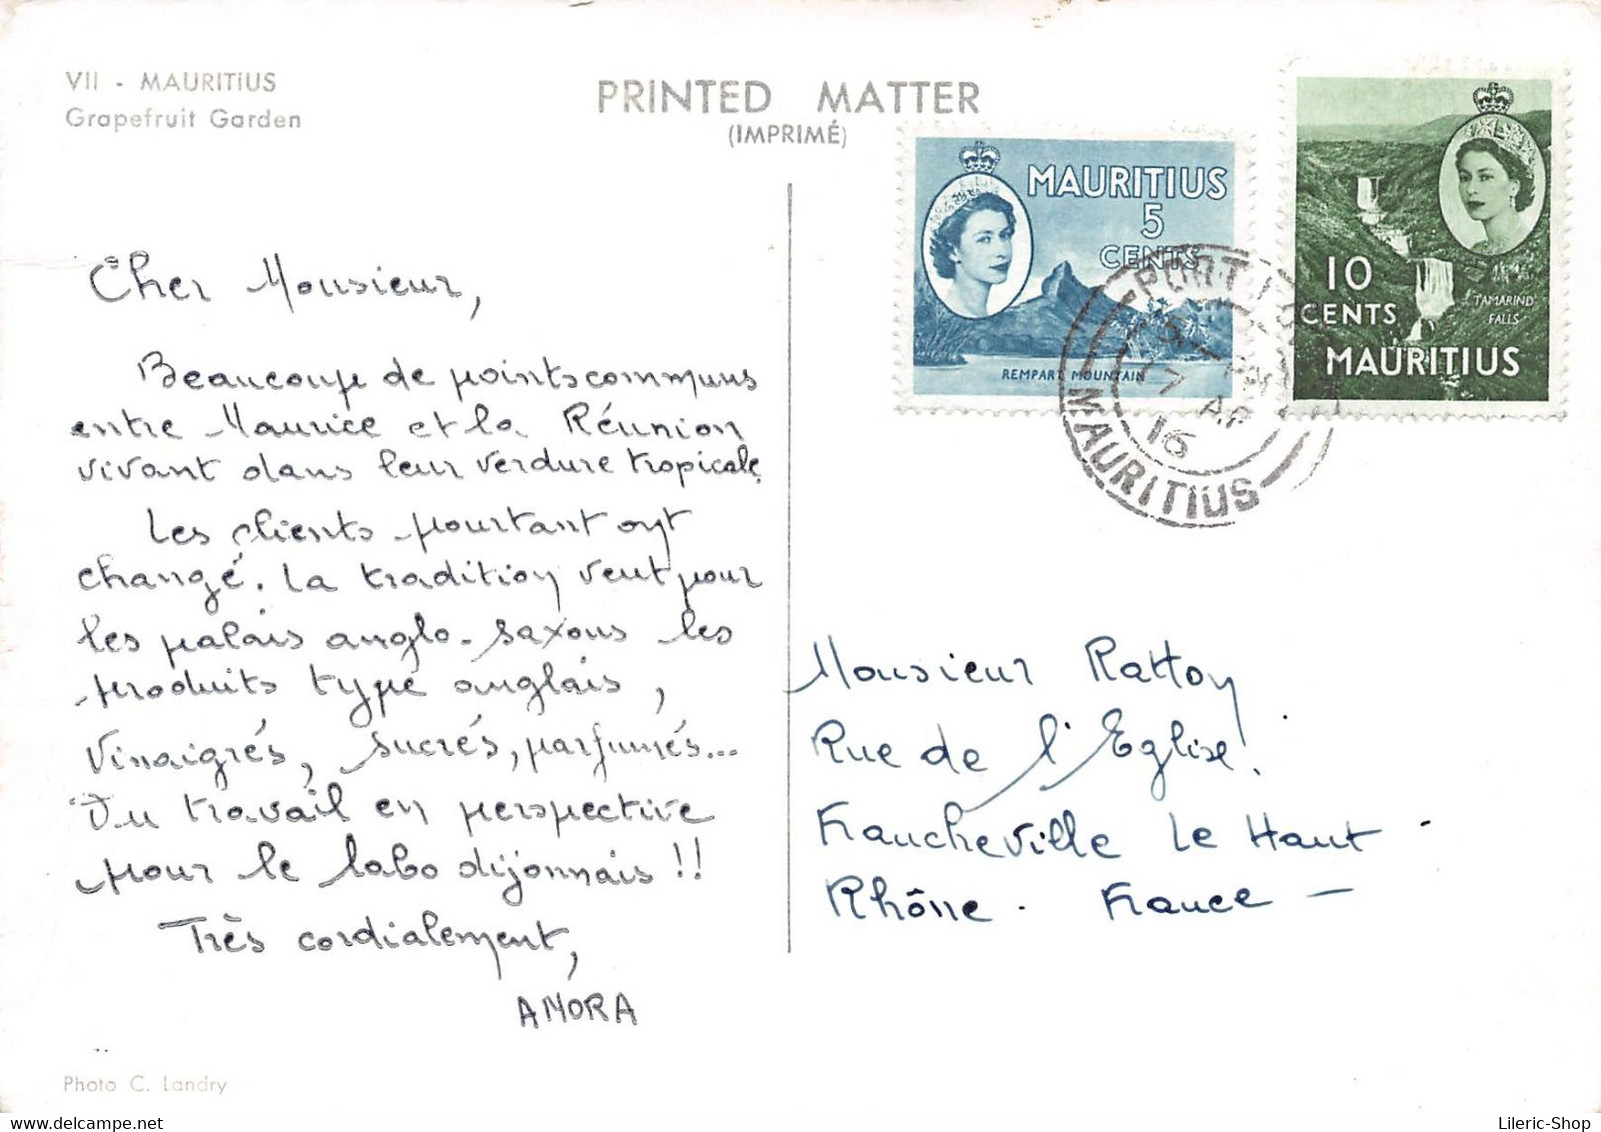 VII - MAURITIUS
Grapefruit Garden
PRINTED MATTER
(IMPRIMÉ)
MAURITIUS
5
CENTS
REMPART MOUNTAIN
10
CENTS
TAMARIND
FALLS
MAURITIUS
PORT
17 AP
16
MAURITIUS
Cher Monsieur,
Beaucoup de points communs
entre Maurice et la Réunion
vivant dans leur verdure tropicale.
Les clients pourtant ont
changé. La tradition veut pour
les palais anglo-saxons les
produits type anglais,
Vinaigrés, sucrés, parfumés...
Du travail en perspective
pour le labo dijonnais !!
Très cordialement,
AMORA
Monsieur Ratton
Rue de l'Eglise.
Francheville Le Haut -
Rhône . France -
Photo C. Landry
Lileric-Shop